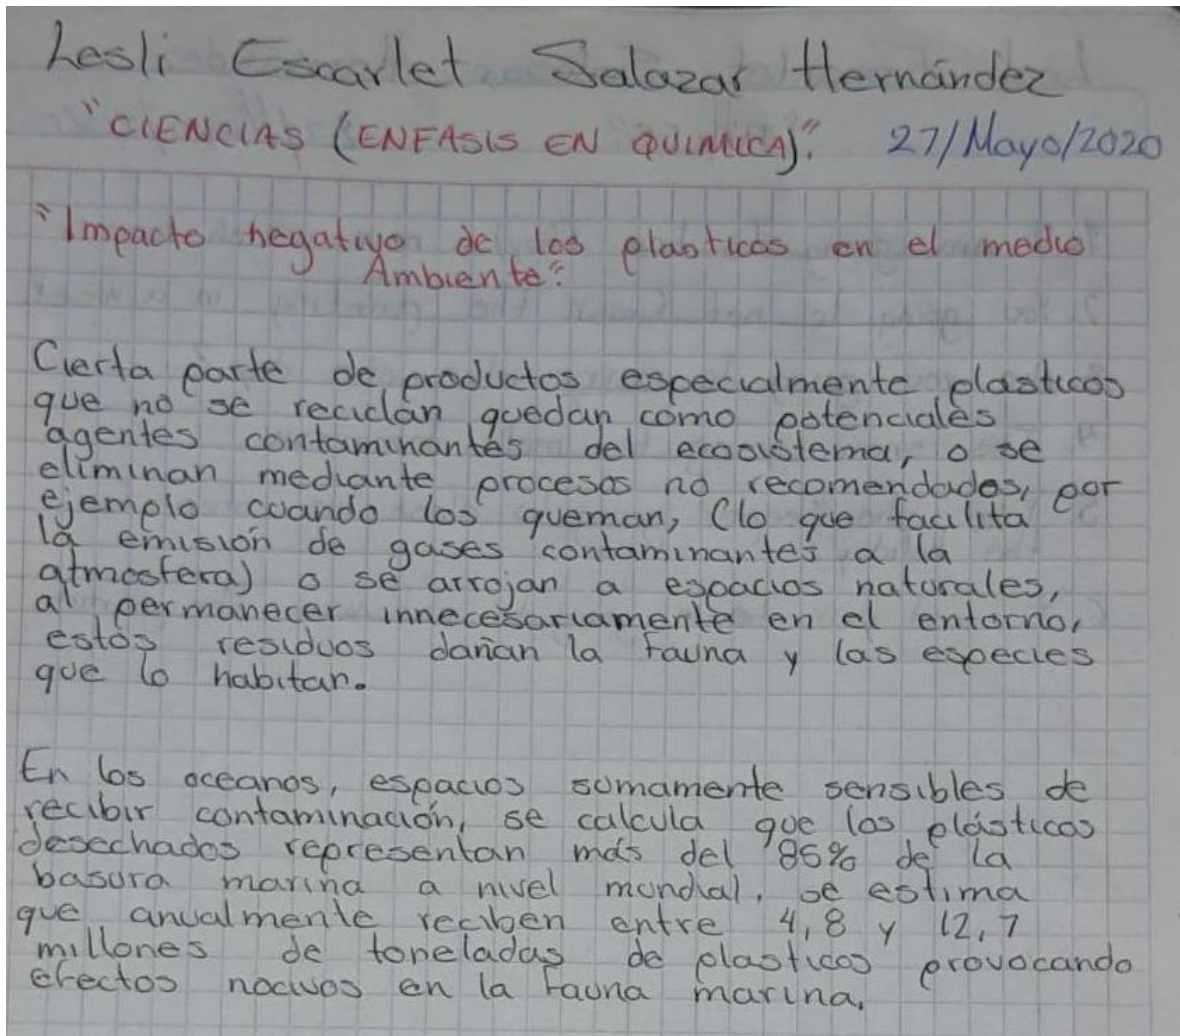 Lesli Escarlet Salazar Hernández
"CIENCIAS (ENFASIS EN QUIMICA)". 27/Mayo/2020
"Impacto negativo de los plasticos en el medio
Ambiente".
Cierta parte de productos especialmente plasticos
que no se reciclan quedan como potenciales
agentes contaminantes del ecosistema, o se
eliminan mediante procesos no recomendados, por
ejemplo cuando los queman, (lo que facilita
la emisión de gases contaminantes a la
atmosfera) o se arrojan a espacios naturales,
al permanecer innecesariamente en el entorno,
estos residuos dañan la fauna y las especies
que lo habitan.
En los oceanos, espacios sumamente sensibles de
recibir contaminación, se calcula que los plásticos
desechados representan más del 85% de la
basura marina a nivel mundial. se estima
que anualmente reciben entre 4,8 y 12,7
millones de toneladas de plasticos provocando
efectos nocivos en la fauna marina.